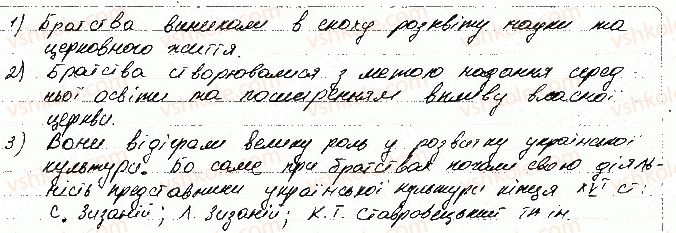 1) Братства виникали в епоху розквіту науки та
церковного життя.
2) Братства створювалися з метою надання серед-
ньої освіти та поширенням впливу власної
церкви.
3) Вони відіграли велику роль у розвитку української
культури. Бо саме при братствах почали свою діяль-
ність представники української культури кінця XVI ст:
С. Зизаній; Л. Зизаній; К.Т. Ставровецький та ін.